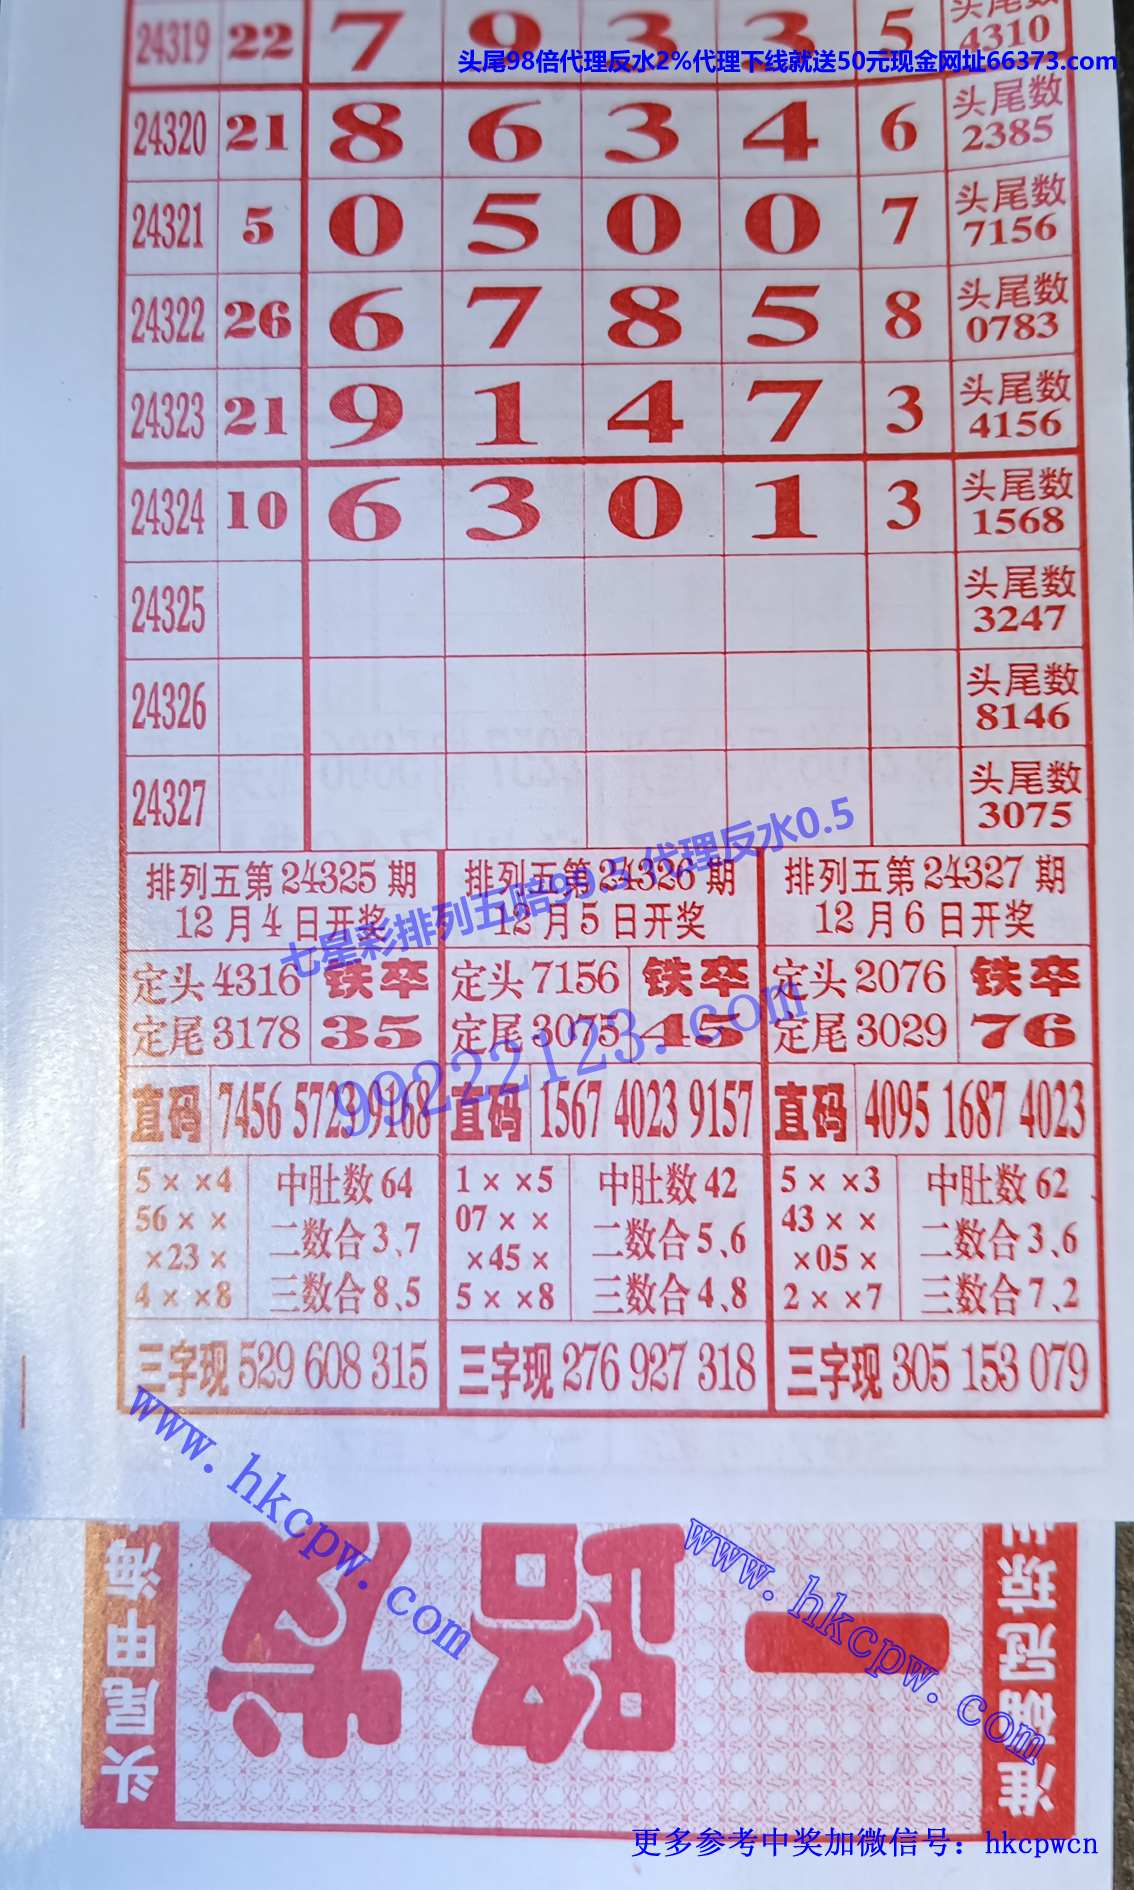 头尾数
24319 22 7 9 3 3 5 4310
头尾98倍代理反水2%代理下线就送50元现金网址66373.com
头尾数
24320 21 8 6 3 4 6 2385
头尾数
24321 5 0 5 0 0 7 7156
头尾数
24322 26 6 7 8 5 8 0783
头尾数
24323 21 9 1 4 7 3 4156
头尾数
24324 10 6 3 0 1 3 1568
头尾数
24325 3247
头尾数
24326 8146
头尾数
24327 3075
七星彩排列五赔99.5 代理反水0.5
排列五第24325期 排列五第24326期 排列五第24327期
12月4日开奖 12月5日开奖 12月6日开奖
定头4316 铁卒 定头7156 铁卒 定头2076 铁卒
定尾3178 35 定尾3075 45 定尾3029 76
99222123.com
直码 7456 5729 9168 直码 1567 4023 9157 直码 4095 1687 4023
5××4 中肚数64 1××5 中肚数42 5××3 中肚数62
56×× 二数合3、7 07×× 二数合5、6 43×× 二数合3、6
×23× ×45× ×05×
4××8 三数合8、5 5××8 三数合4、8 2××7 三数合7、2
三字现 529 608 315 三字现 276 927 318 三字现 305 153 079
www.hkcpw.com
www.hkcpw.com
头尾甲海
一路发
准确冠琼
更多参考中奖加微信号：hkcpwcn